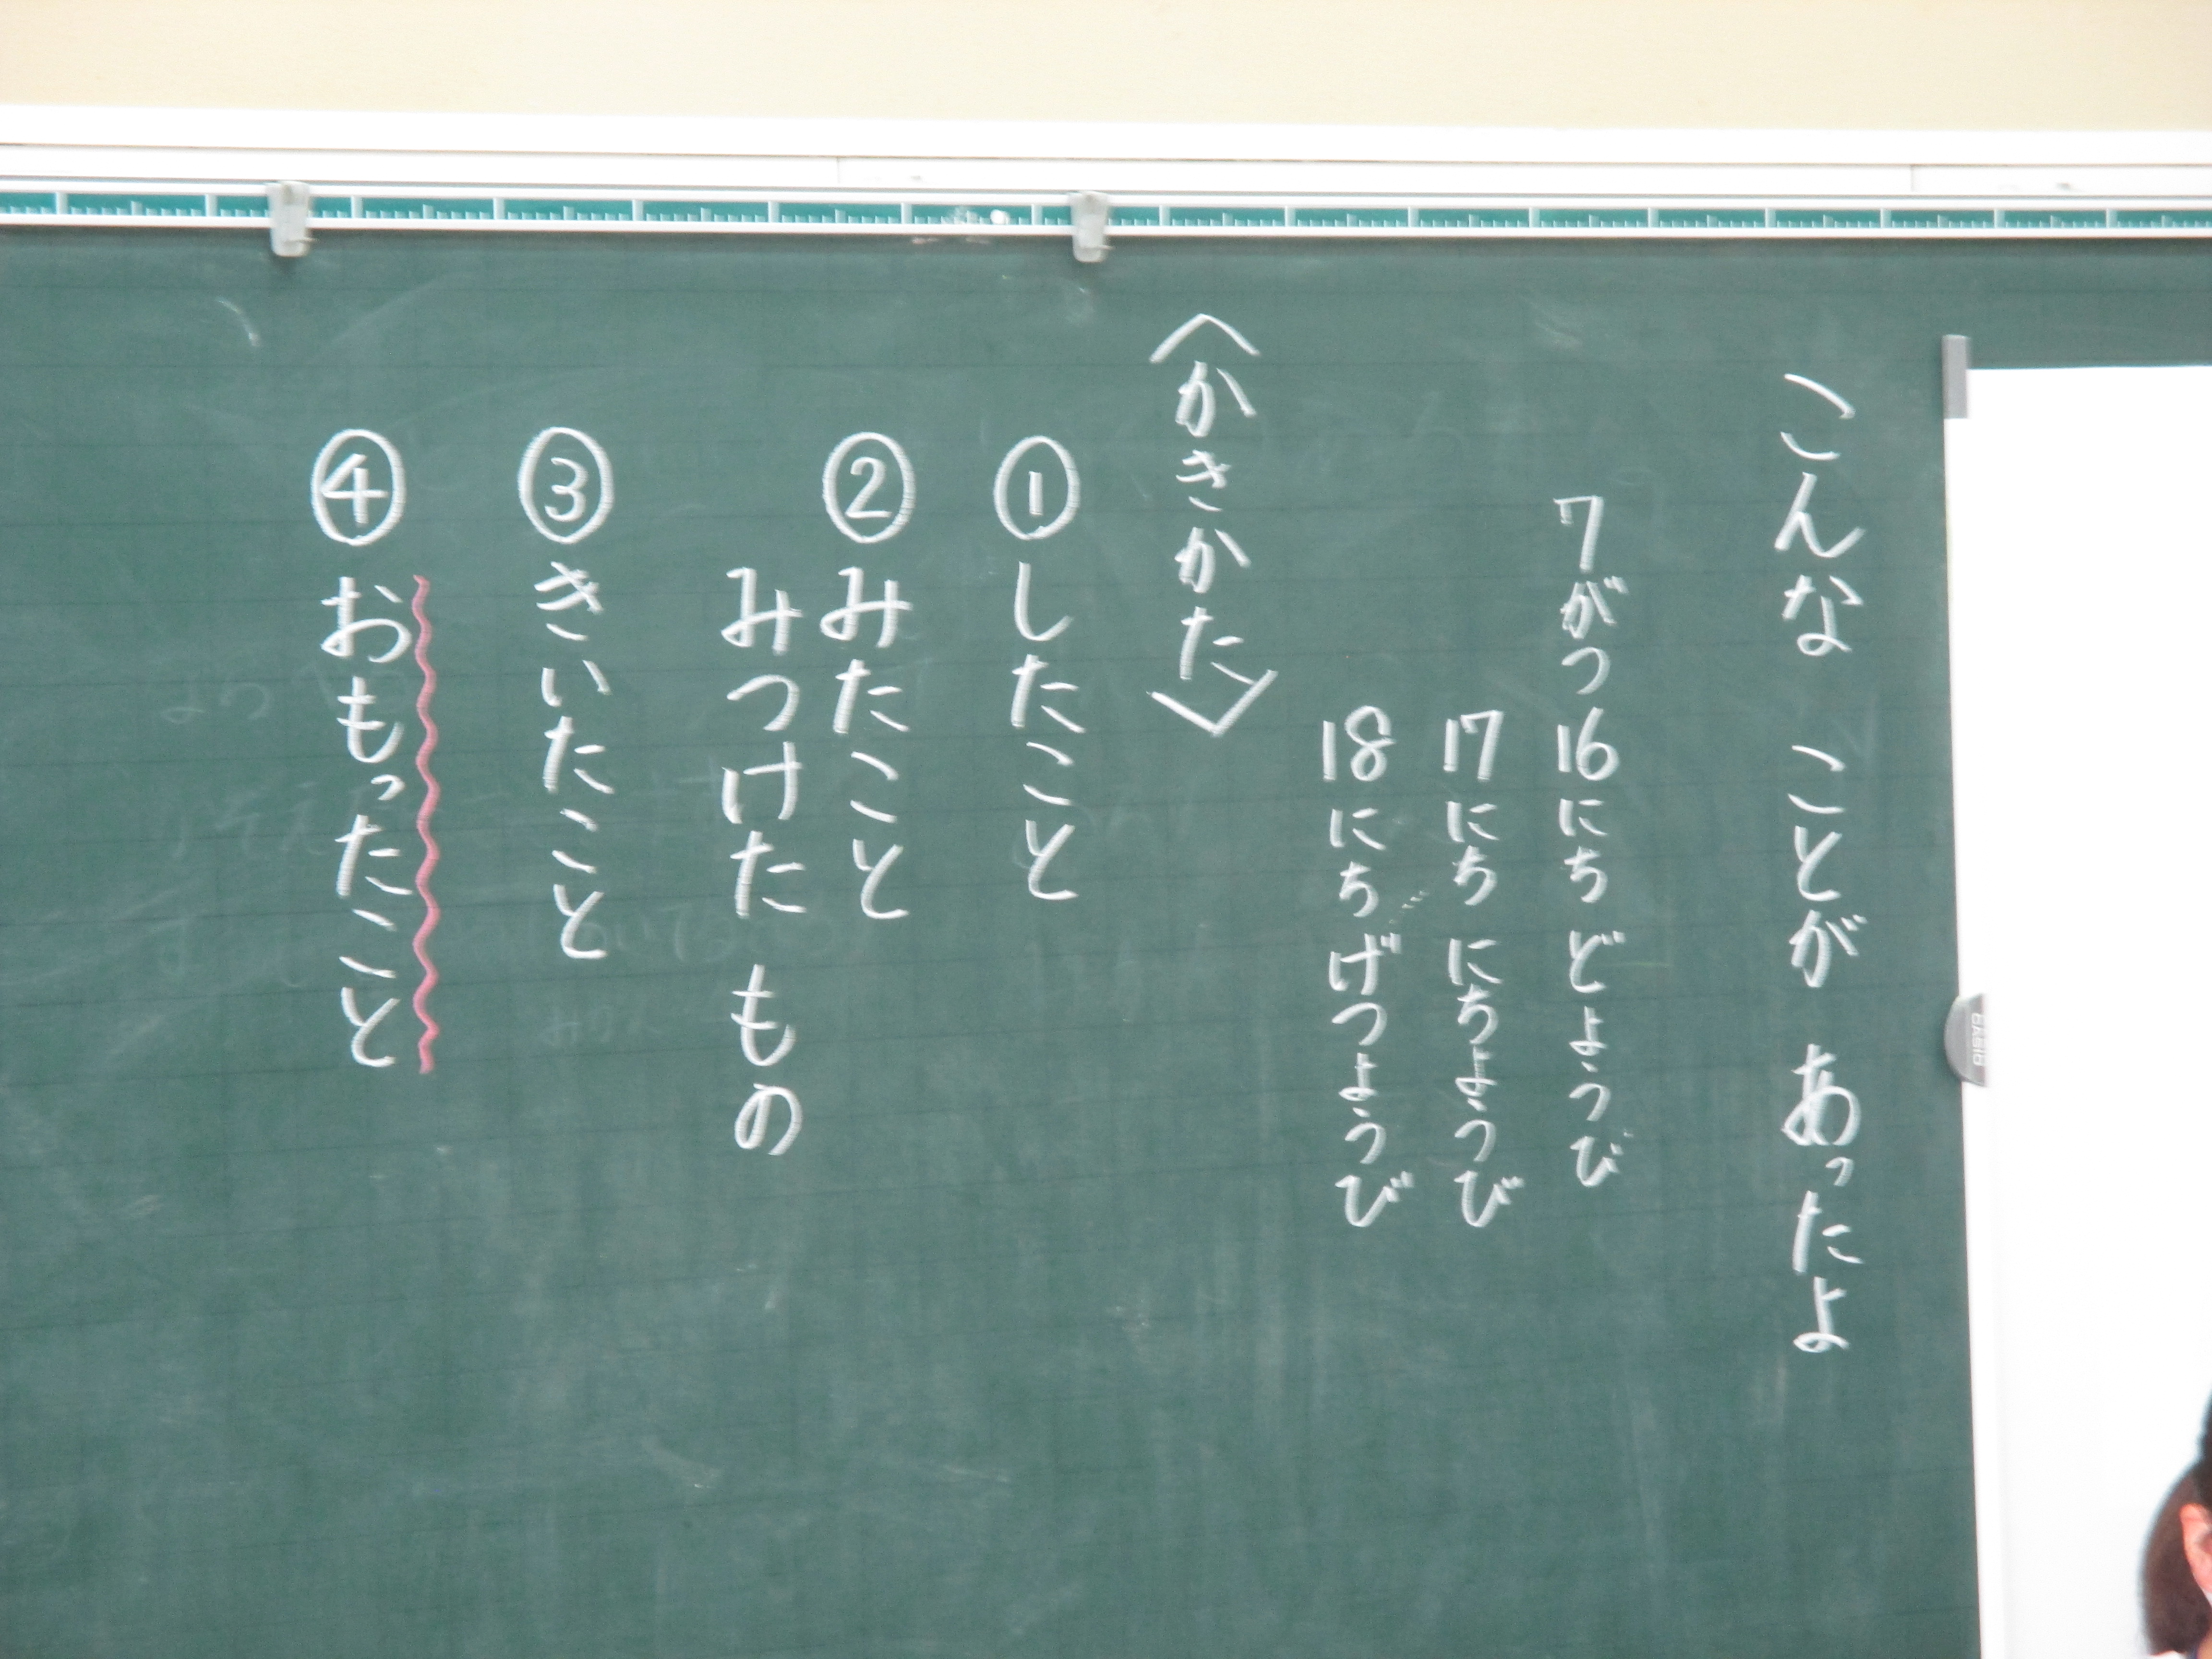 こんな ことが あったよ
7がつ16にち どようび
17にち にちようび
18にち げつようび
〈かきかた〉
①したこと
②みたこと
みつけた もの
③きいたこと
④おもったこと